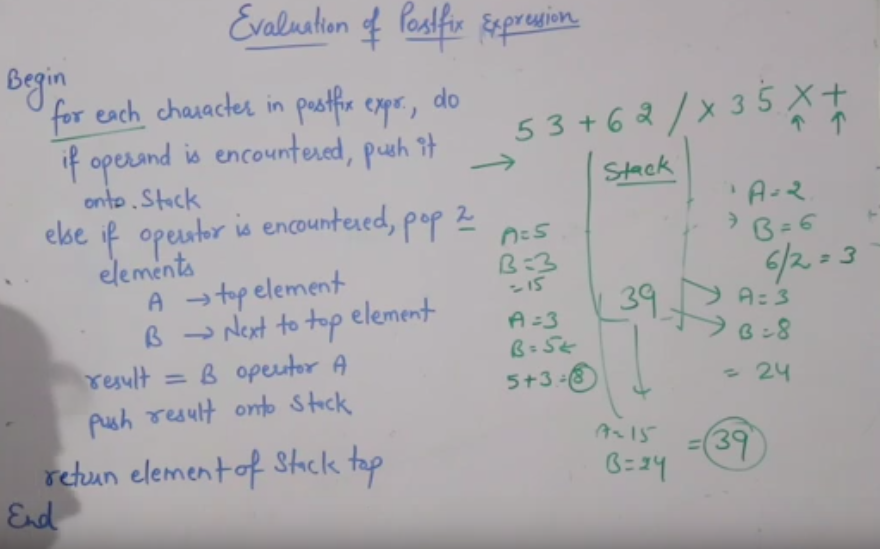 Evaluation of Postfix Expression
Begin
for each character in postfix expr., do
if operand is encountered, push it
onto. Stack
else if operator is encountered, pop 2
elements
A → top element
B → Next to top element
result = B operator A
push result onto Stack
return element of Stack top
End
5 3 + 6 2 / × 3 5 × +
Stack
39
A=5
B=3
=15
A=3
B=5
5+3=8
A=2
B=6
6/2=3
A=3
B=8
= 24
A=15
B=24
= 39